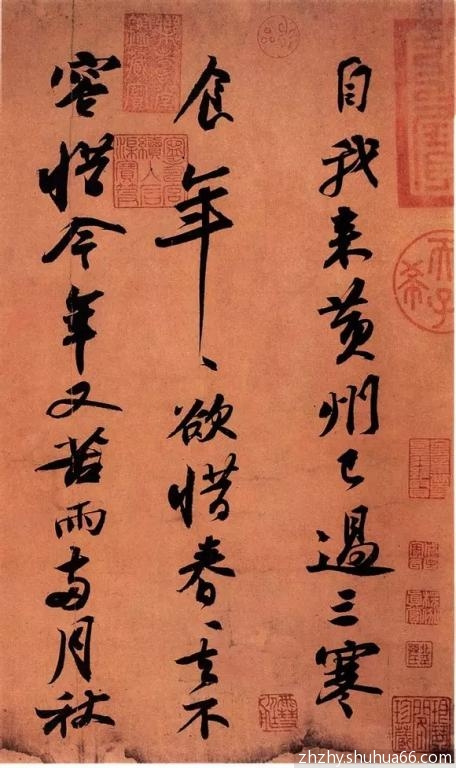 自我来黄州已過三寒
食年〻欲惜春〻去不
容惜今年又苦雨两月秋
天子
希
zhzhy.shuhua66.com